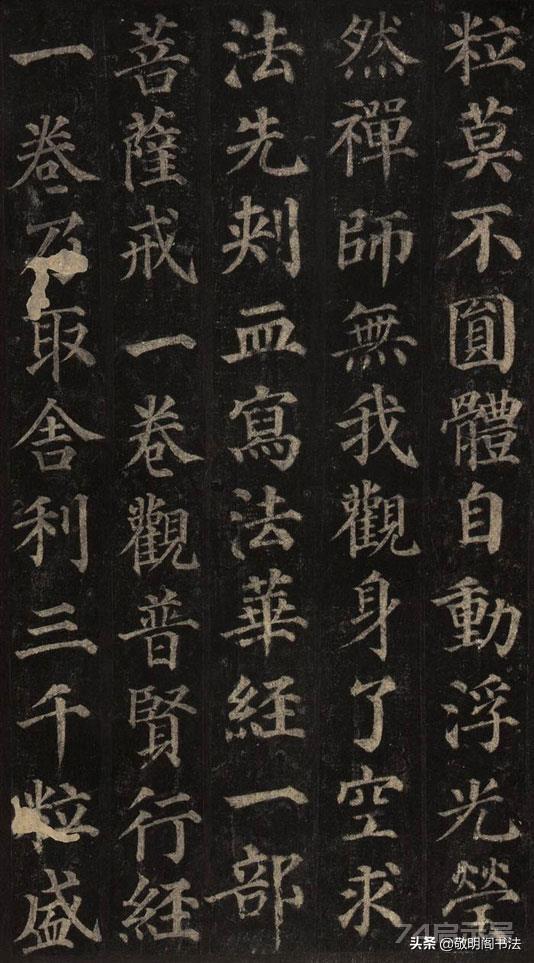 粒莫不圓體自動浮光瑩
然禪師無我觀身了空求
法先刺血寫法華経一部
菩薩戒一卷觀普賢行経
一卷乃取舍利三千粒盛
头条 @敬明阁书法